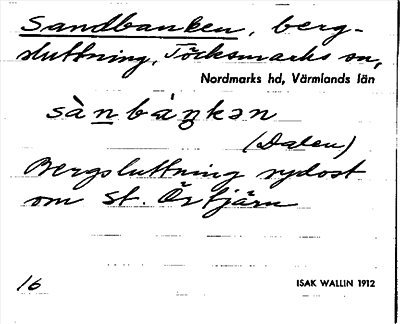 Sandbanken, berg-
sluttning, Töcksmarks sn,
Nordmarks hd, Värmlands län
sàn̲bàŋkən
(Dalen)
Bergsluttning sydost
om St. Örtjärn
16
ISAK WALLIN 1912